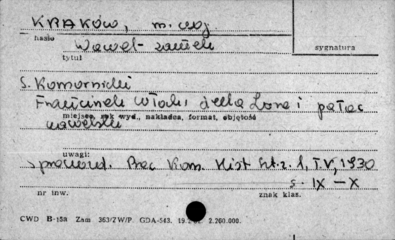 KRAKÓW, m. woj
hasło
Wawel - zamek
tytuł
sygnatura
S. Komornicki
Franciszek Włoch, della Lora i pałac
wawelski
miejsce, rok wyd., nakładca, format, objętość
uwagi:
sprawozd. Prac Kom. Hist Szt. z. 1, T. V, 1930
s. IX - X
nr inw.
znak klas.
CWD B-158 Zam 363/ZW/P. GDA-543. 2.200.000.